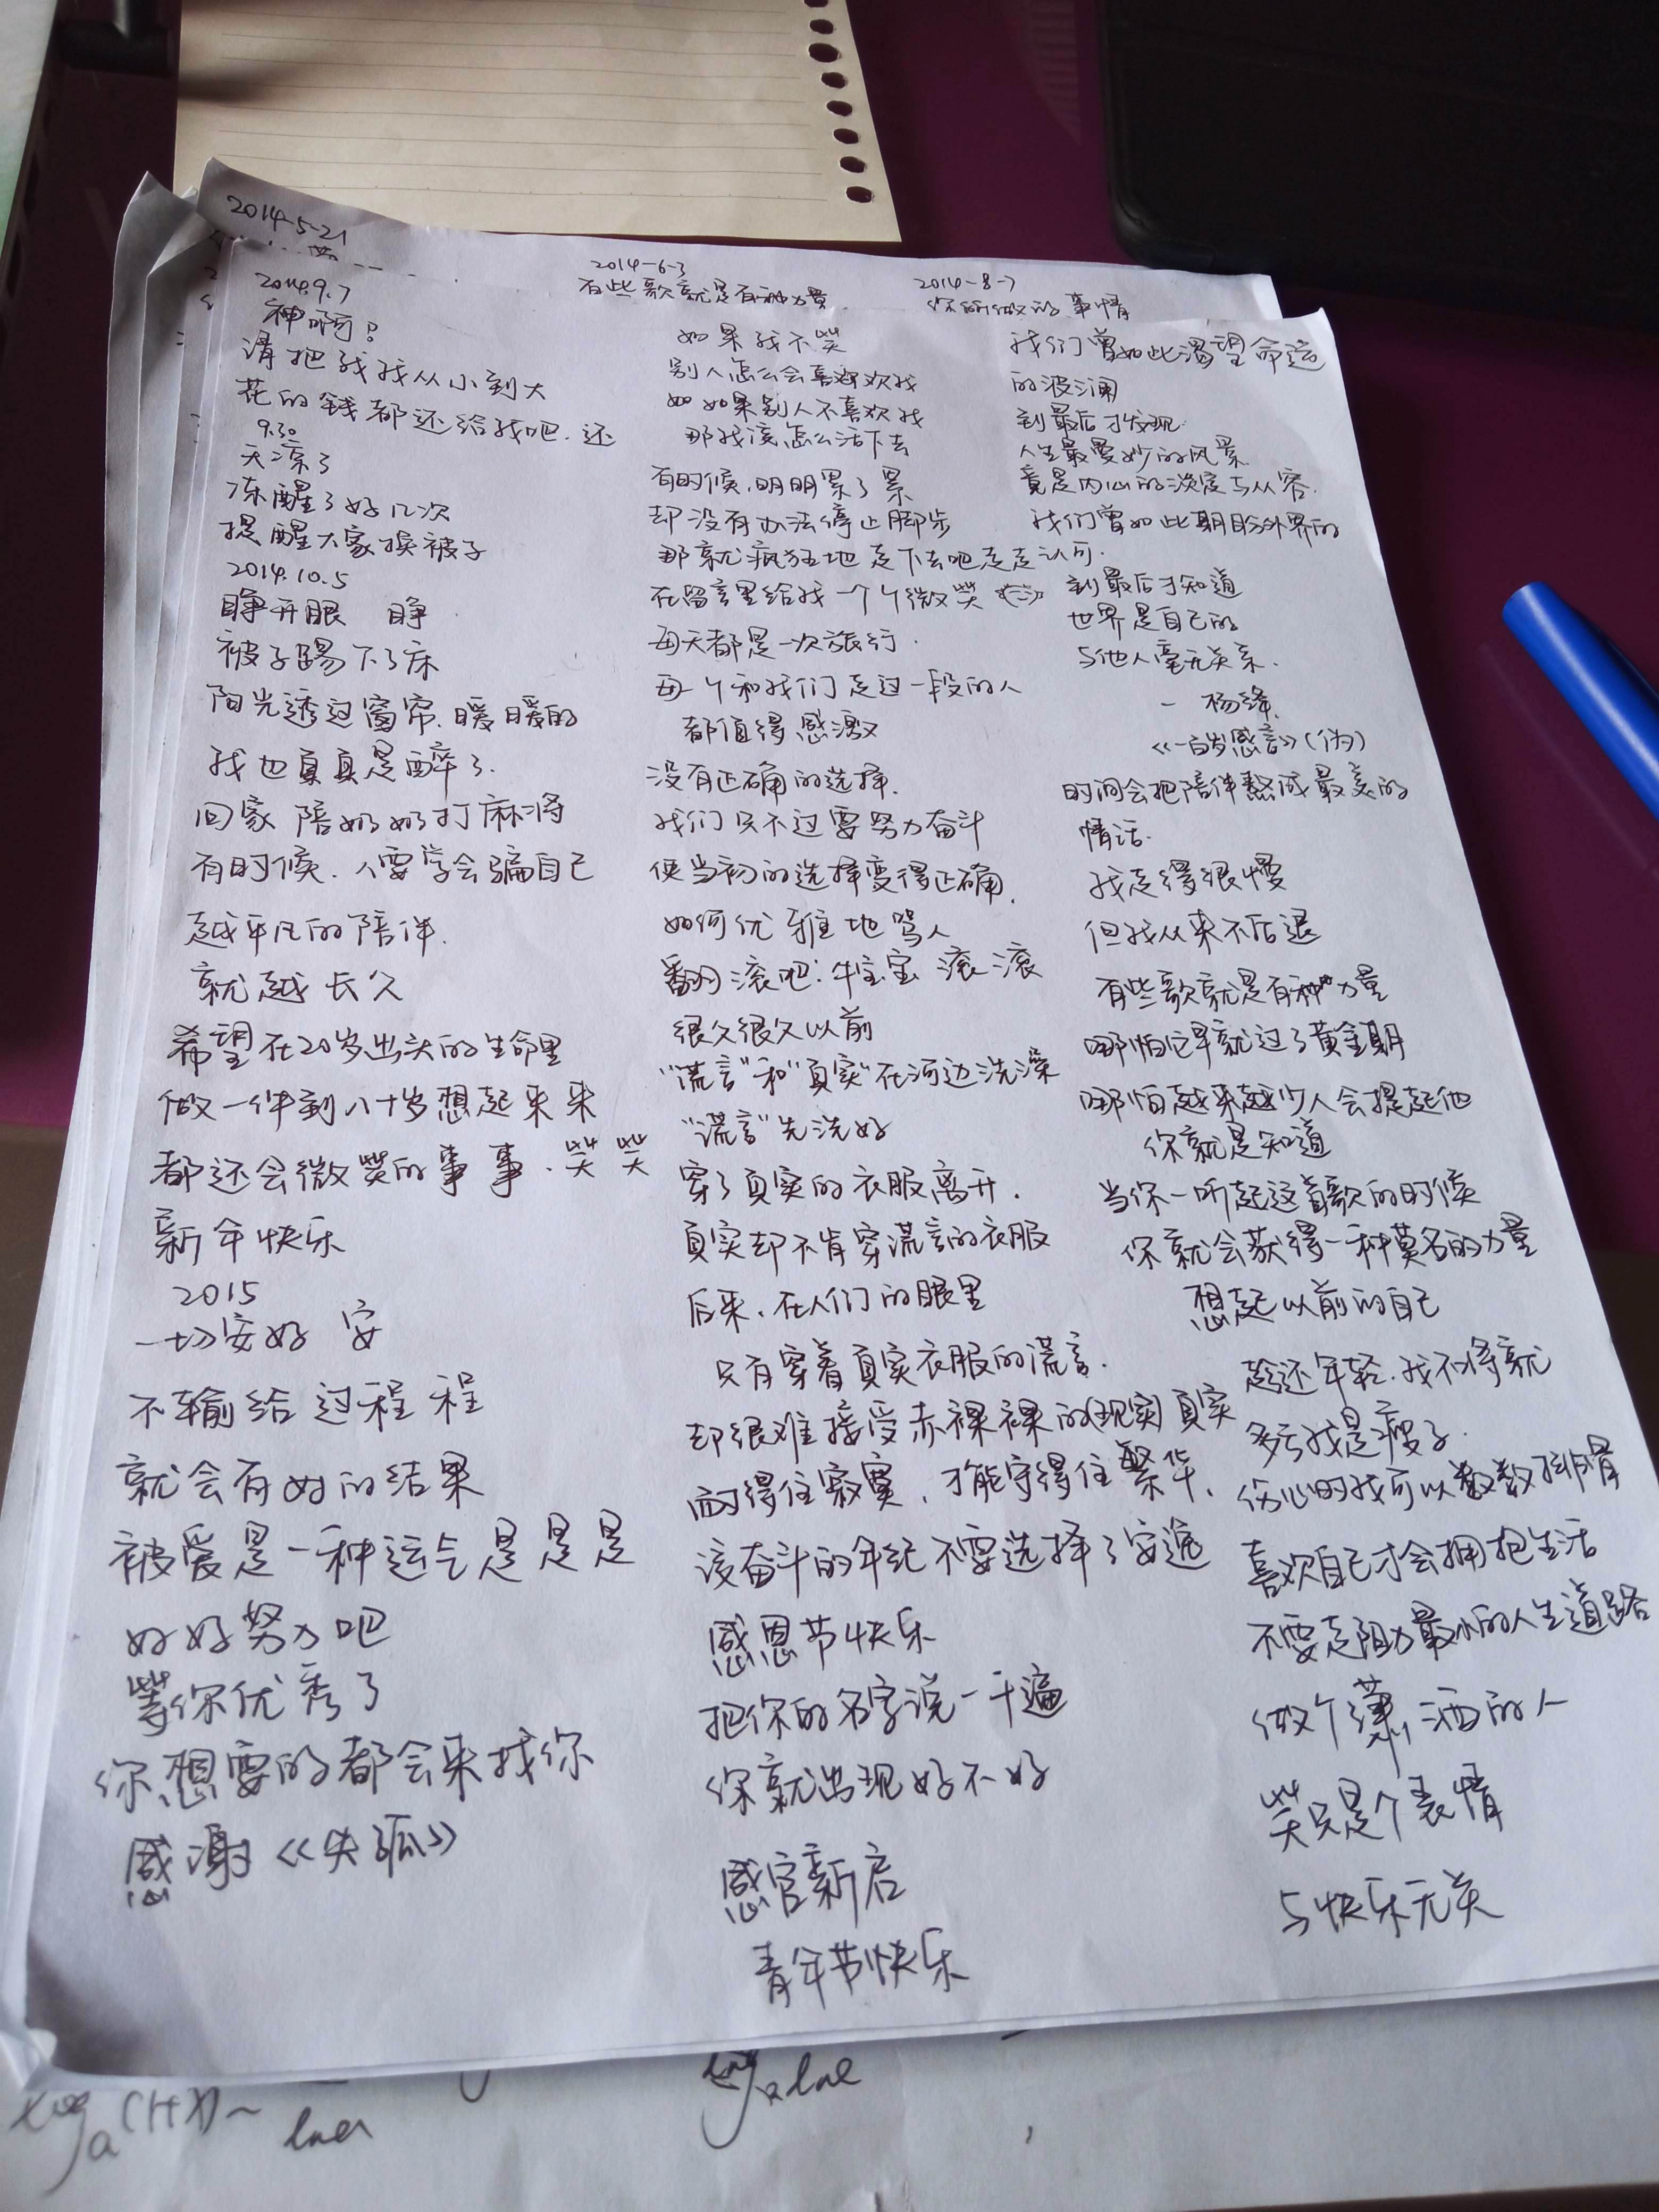 2014-5-21
2014-6-3
有些歌就是有种力量
2014-8-7
你所做的事情
2014.9.7
神啊?
请把我我从小到大
花的钱都还给我吧.还
9.30
天凉了
冻醒了好几次
提醒大家换被子
2014.10.5
睁开眼 睁
被子踢下了床
阳光透过窗帘.暖暖的
我也真真是醉了.
回家 陪奶奶打麻将
有时候.人要学会骗自己
越平凡的陪伴.
就越长久
希望在20岁出头的生命里
做一件到八十岁想起来来
都还会微笑的事事.笑笑
新年快乐
2015
一切安好 安
不输给过程 程
就会有好的结果
被爱是一种运气是是是
好好努力吧
等你优秀了
你想要的都会来找你
感谢《失孤》
如果我不笑
别人怎么会喜欢欢我
如如果别人不喜欢我
那我该怎么活下去
有时候.明明累了累
却没有办法停止脚步
那就疯狂地走下去吧走走认可.
在留言里给我一个个微笑
每天都是一次旅行.
每个和我们走过一段的人
都值得感激
没有正确的选择.
我们只不过要努力奋斗
使当初的选择变得正确.
如何优雅地骂人
翻滚吧:牛宝宝 滚滚
很久很久以前
"谎言"和"真实"在河边洗澡
"谎言"先洗好
穿了真实的衣服离开.
真实却不肯穿谎言的衣服
后来.在人们的眼里
只有穿着真实衣服的谎言.
却很难接受赤裸裸的现实真实
耐得住寂寞.才能守得住繁华.
该奋斗的年纪不要选择了安逸
感恩节快乐
把你的名字说一千遍
你就出现好不好
感官新启
青年节快乐
我们曾如此渴望命运
的波澜
到最后才发现
人生最曼妙的风景
竟是内心的淡定与从容.
我们曾如此期盼外界的
到最后才知道
世界是自己的
与他人毫无关系.
— 杨绛
《一百岁感言》(伪)
时间会把陪伴熬成最美的
情话.
我走得很慢
但我从来不后退
有些歌就是有种力量
哪怕它早就过了黄金期
哪怕越来越少人会提起他
你就是知道
当你一听起这首歌的时候
你就会获得一种莫名的力量
想起以前的自己
趁还年轻.我不将就
多亏我是瘦子.
伤心时我可以数数排骨
喜欢自己才会拥抱生活
不要走阻力最小的人生道路
做个潇洒的人
笑只是个表情
与快乐无关
log a (1+x)~
lna